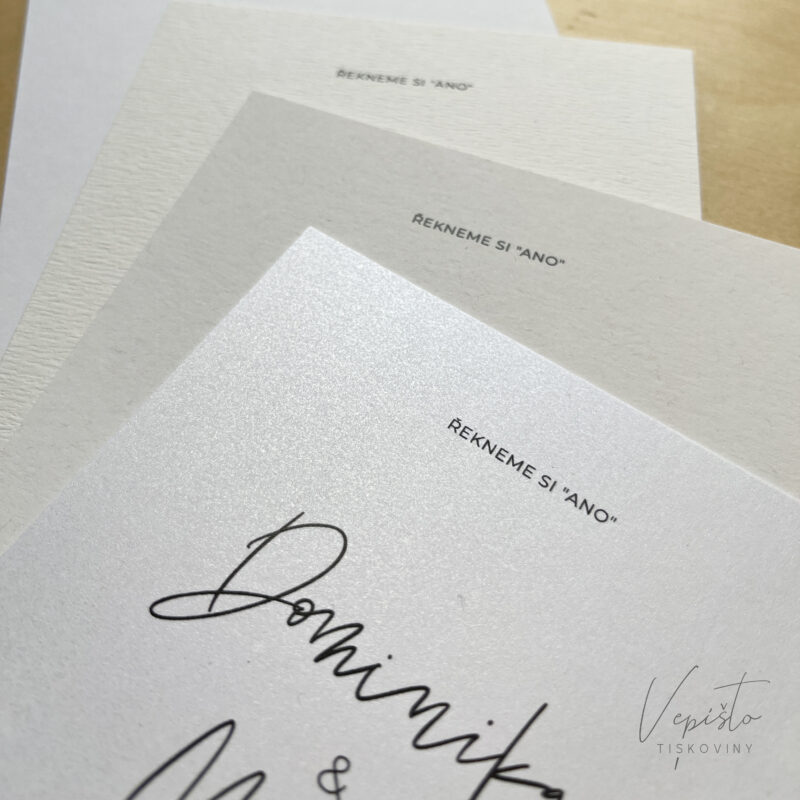 ŘEKNEME SI "ANO"
ŘEKNEME SI "ANO"
ŘEKNEME SI "ANO"
Dominika
&
Vepišto
TISKOVINY